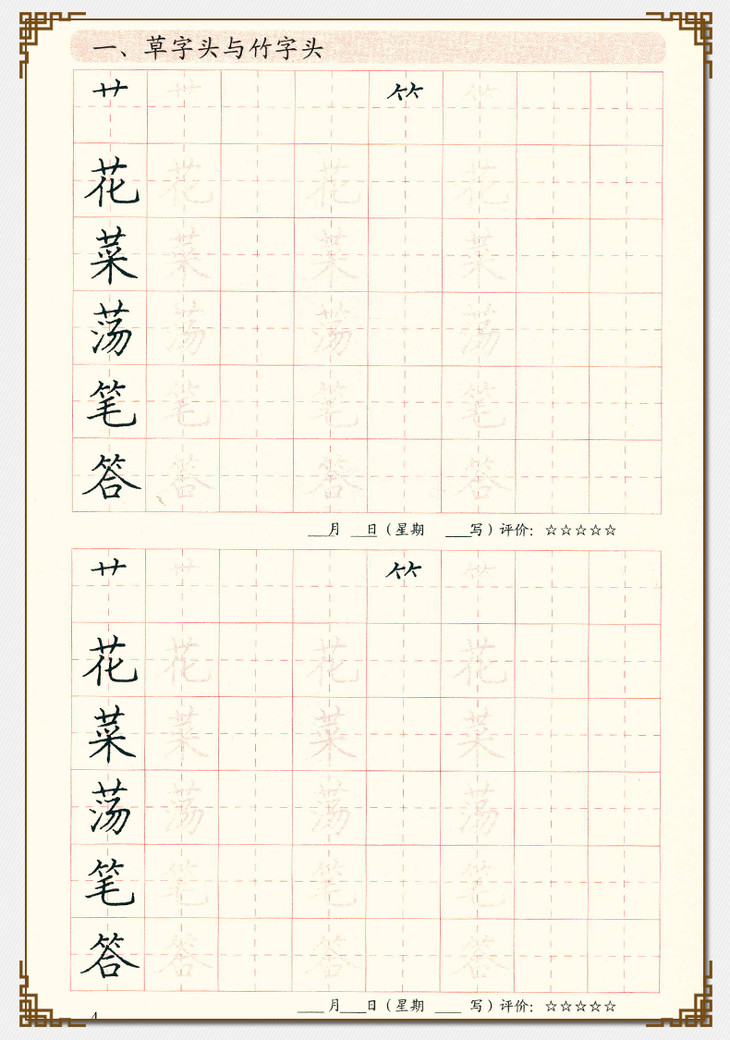 一、草字头与竹字头
艹 艹 𥫗 𥫗
花 花 花 花
菜 菜 菜 菜
荡 荡 荡 荡
笔 笔 笔 笔
答 答 答 答
___月 ___日（星期 ___写）评价：☆☆☆☆☆
艹 艹 𥫗 艹
花 花 花 花
菜 菜 菜 菜
荡 荡 荡 荡
笔 笔 笔 笔
答 答 答 答
___月___日（星期 ___ 写）评价：☆☆☆☆☆
4